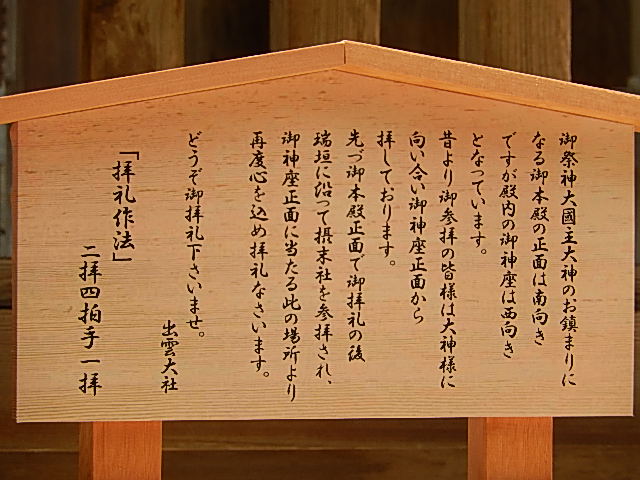 御祭神大國主大神のお鎮まりに
なる御本殿の正面は南向き
ですが殿内の御神座は西向き
となっています。
昔より御参拝の皆様は大神様に
向い合い御神座正面から
拝しております。
先づ御本殿正面で御拝礼の後
瑞垣に沿って摂末社を参拝され、
御神座正面に当たる此の場所より
再度心を込め拝礼なさいます。
どうぞ御拝礼下さいませ。
出雲大社
「拝礼作法」
二拝四拍手一拝